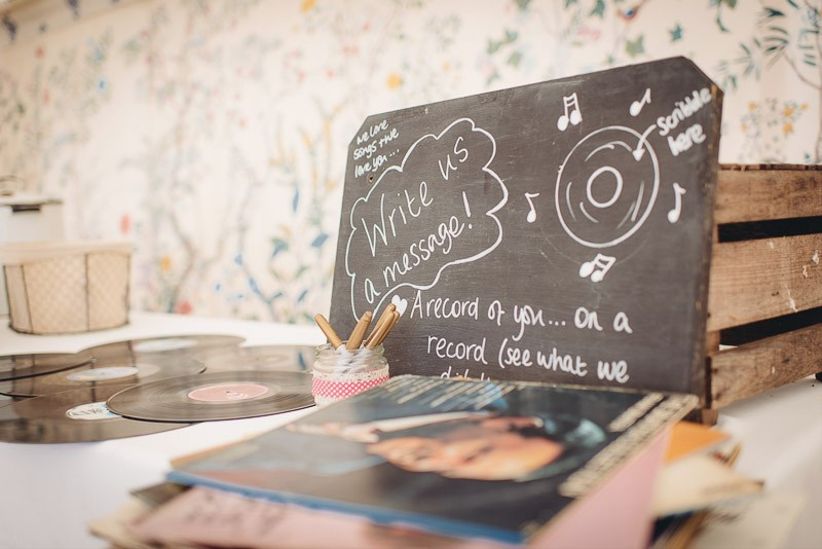 we love
songs & we
love you...
Write us
a message!
Scribble
here
A record of you... on a
record (see what we